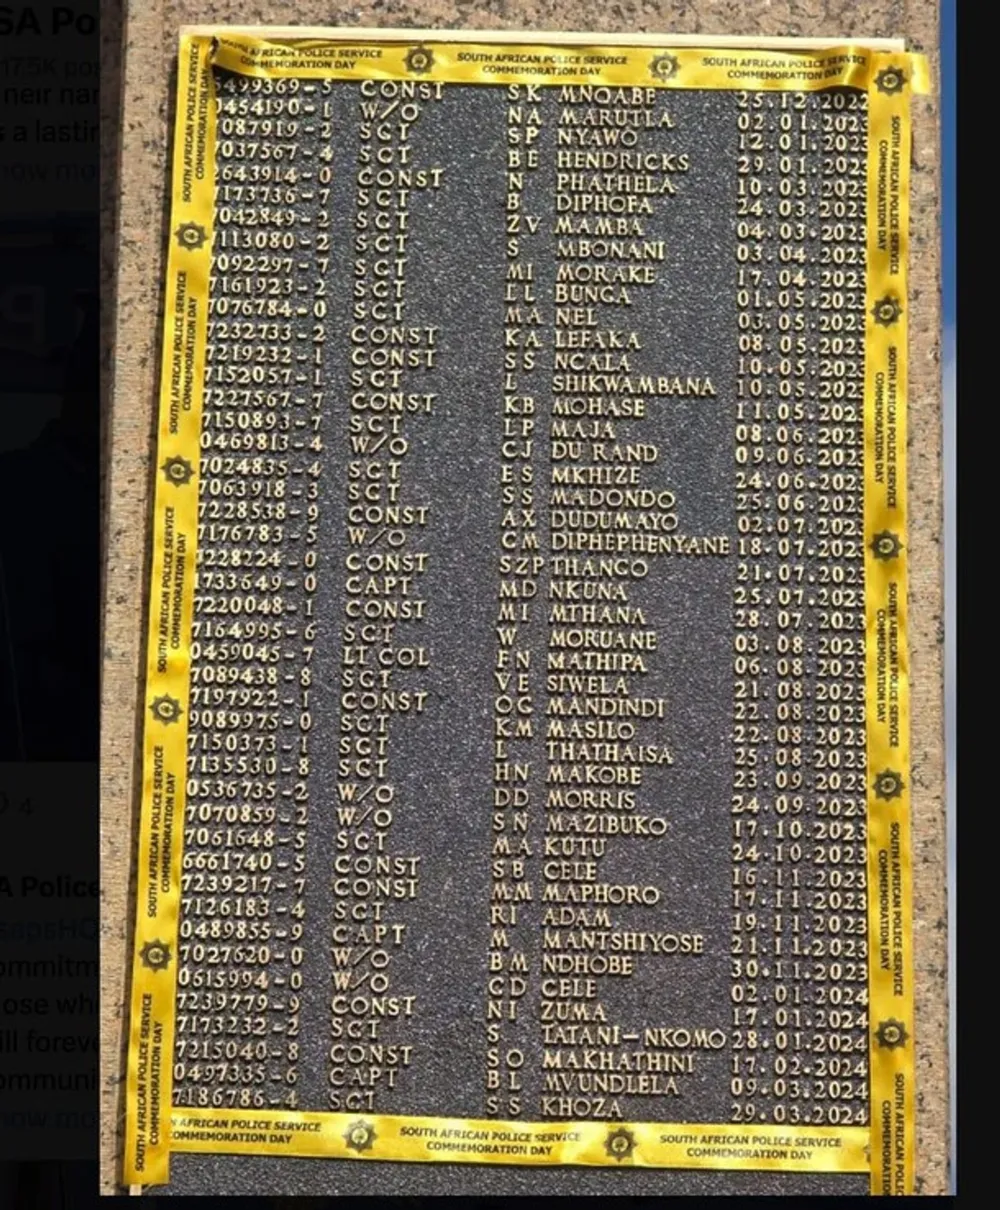 SOUTH AFRICAN POLICE SERVICE COMMEMORATION DAY
SOUTH AFRICAN POLICE SERVICE COMMEMORATION DAY
SOUTH AFRICAN POLICE SERVICE COMMEMORATION DAY
5499369-5 CONST SK MNQABE 25.12.2022
0454190-1 W/O NA MARUTLA 02.01.2023
7087919-2 SGT SP NYAWO 12.01.2023
7037567-4 SGT BE HENDRICKS 29.01.2023
2643914-0 CONST N PHATHELA 10.03.2023
7173736-7 SGT B DIPHOFA 24.03.2023
7042849-2 SGT ZV MAMBA 04.03.2023
7113080-2 SGT S MBONANI 03.04.2023
7092297-7 SGT MI MORAKE 17.04.2023
7161923-2 SGT LL BUNGA 01.05.2023
7076784-0 SGT MA NEL 03.05.2023
7232733-2 CONST KA LEFAKA 08.05.2023
7219232-1 CONST SS NCALA 10.05.2023
7152057-1 SGT L SHIKWAMBANA 10.05.2023
7227567-7 CONST KB MOHASE 11.05.2023
7150893-7 SGT LP MAJA 08.06.2023
0469813-4 W/O CJ DU RAND 09.06.2023
7024835-4 SGT ES MKHIZE 24.06.2023
7063918-3 SGT SS MADONDO 25.06.2023
7228538-9 CONST AX DUDUMAYO 02.07.2023
7176783-5 W/O CM DIPHEPHENYANE 18.07.2023
7228224-0 CONST SZP THANGO 21.07.2023
1733649-0 CAPT MD NKUNA 25.07.2023
7220048-1 CONST MI MTHANA 28.07.2023
7164995-6 SGT W MORUANE 03.08.2023
0459045-7 LT COL FN MATHIPA 06.08.2023
7089438-8 SGT VE SIWELA 21.08.2023
7197922-1 CONST OG MANDINDI 22.08.2023
9089975-0 SGT KM MASILO 22.08.2023
7150373-1 SGT L THATHAISA 25.08.2023
7135530-8 SGT HN MAKOBE 23.09.2023
0536735-2 W/O DD MORRIS 24.09.2023
7070859-2 W/O SN MAZIBUKO 17.10.2023
7061648-5 SGT MA KUTU 24.10.2023
6661740-5 CONST SB CELE 16.11.2023
7239217-7 CONST MM MAPHORO 17.11.2023
7126183-4 SGT RI ADAM 19.11.2023
0489855-9 CAPT M MANTSHIYOSE 21.11.2023
7027620-0 W/O BM NDHOBE 30.11.2023
0615994-0 W/O CD CELE 02.01.2024
7239779-9 CONST NI ZUMA 17.01.2024
7173232-2 SGT S TATANI-NKOMO 28.01.2024
7215040-8 CONST SO MAKHATHINI 17.02.2024
0497335-6 CAPT BL MVUNDLELA 09.03.2024
7186786-4 SGT SS KHOZA 29.03.2024
AFRICAN POLICE SERVICE COMMEMORATION DAY
SOUTH AFRICAN POLICE SERVICE COMMEMORATION DAY
SOUTH AFRICAN POLICE SERVICE COMMEMORATION DAY